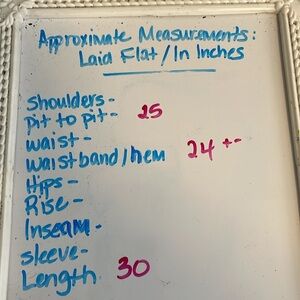 Approximate Measurements:
Laid Flat/In Inches
Shoulders-
pit to pit- 25
waist-
waistband/hem 24 +-
Hips-
Rise-
Inseam-
sleeve-
Length 30